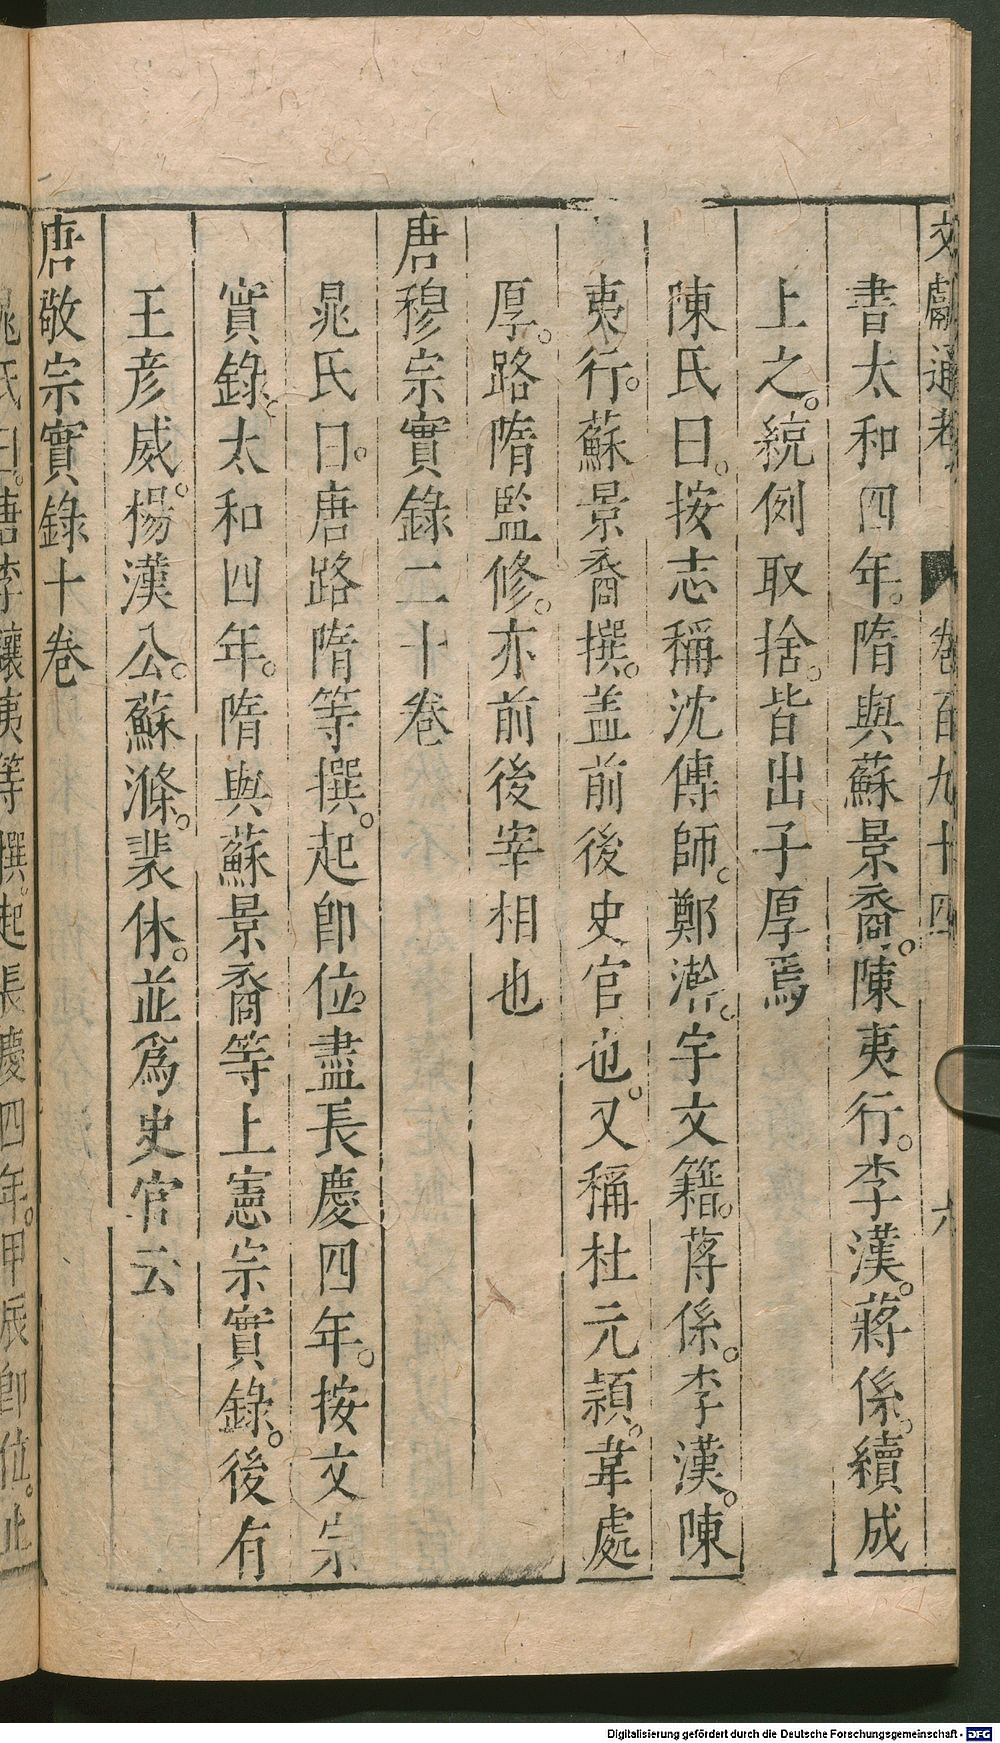 文獻通考 卷百九十四 六
書太和四年。隋與蘇景裔。陳夷行。李漢。蔣係。續成
上之。統例取捨。皆出子厚焉
陳氏曰。按志稱沈傳師。鄭澣。宇文籍。蔣係。李漢。陳
夷行。蘇景裔撰。蓋前後史官也。又稱杜元頴。韋處
厚。路隋監修。亦前後宰相也
唐穆宗實錄二十卷
晁氏曰。唐路隋等撰。起即位盡長慶四年。按文宗
實錄。太和四年。隋與蘇景裔等上憲宗實錄。後有
王彥威。楊漢公。蘇滌。裴休。並爲史官云
唐敬宗實錄十卷
晁氏曰。唐李讓夷等撰。起長慶四年。甲辰即位。止
Digitalisierung gefördert durch die Deutsche Forschungsgemeinschaft - DFG